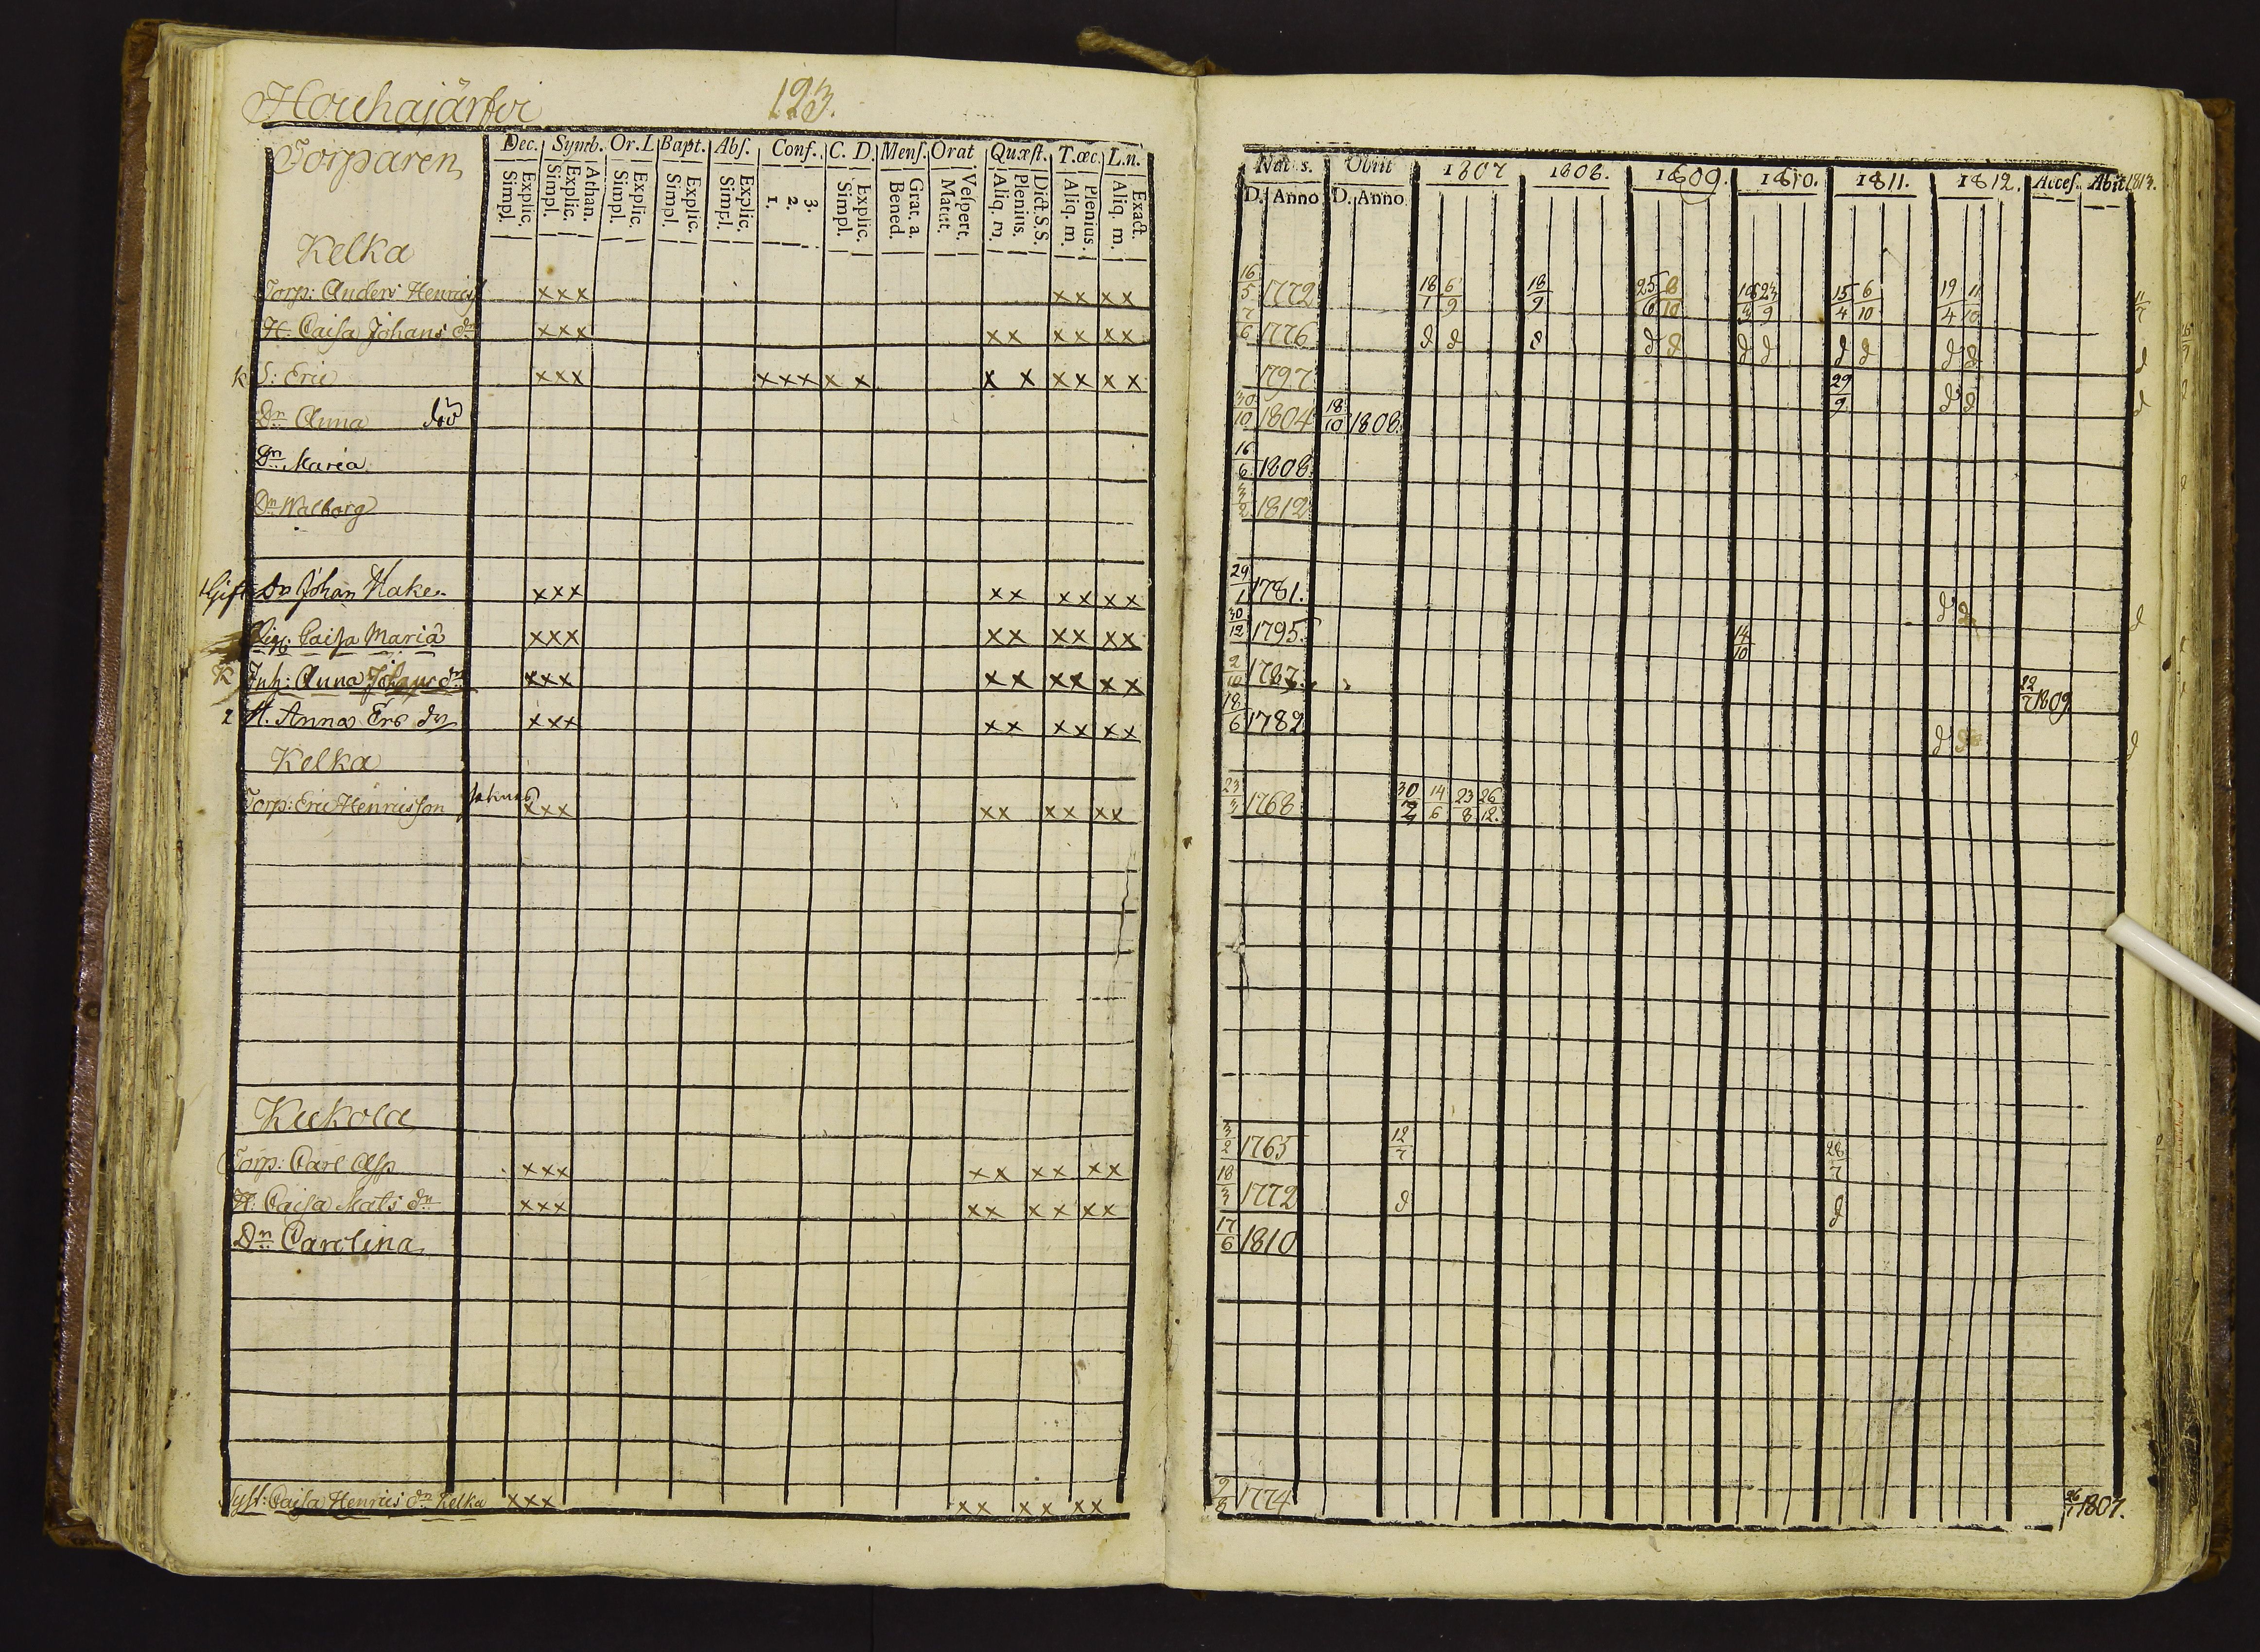 Houhajärfvi 123.
Torparen
Dec. Symb. Or. L Bapt. Abs. Conf. C. D. Mens. Orat Quæst. T. œc. L. n.
Explic. Simpl. Athan. Explic. Simpl. Explic. Simpl. Explic. Simpl. Explic. Simpl. 3. 2. 1. Explic. Simpl. Grat. a. Bened. Vespert. Matut. Dict. S.S. Plenius. Aliq. m. Plenius. Aliq. m. Exact. Aliq. m.
Nat s. Obiit 1807 1808. 1809. 1810. 1811. 1812. Acces. Abit 1813.
D. Anno D. Anno
Kelka
Torp: Anders Henrics xxx xx xx 16/5 1772 18/1 6/9 18/9 25/6 8/10 15/4 6/10 19/4 11/10 11/7
H. Caisa Johans dr xxx xx xx xx 7/6 1776 d d d d d d d d d d d d
k S: Eric xxx xxx x x x x xx x x 1797 29/9 d d d
Dr Anna död 30/10 1804 18/10 1808.
Dr Maria 16/6 1808.
Dr Walborg 3/2 1812
Gift Dr Johan Hake xxx xx xx xx 29/1 1781. d d
Caisa Maria xxx xx xx xx 30/12 1795. 14/10
Inh: Anna Johans dr xxx xx xx xx 2/10 1787. 1809
2 H. Anna Ers dr xxx xx xx xx 18/6 1782 d d
Kelka
Torp: Eric Henricsson xxx xx xx xx 23/3 1768 30 14/6 23/8 26/12.
Kukola
Torp: Carl Asp xxx xx xx xx 3/2 1765 12/7 28/7
H: Caisa Mats dr xxx xx xx xx 18/3 1772 d d
Dr Carolina 17/6 1810
Syst: Caisa Henrics dr Kelka xxx xx xx xx 9/8 1774 26/1 1807.